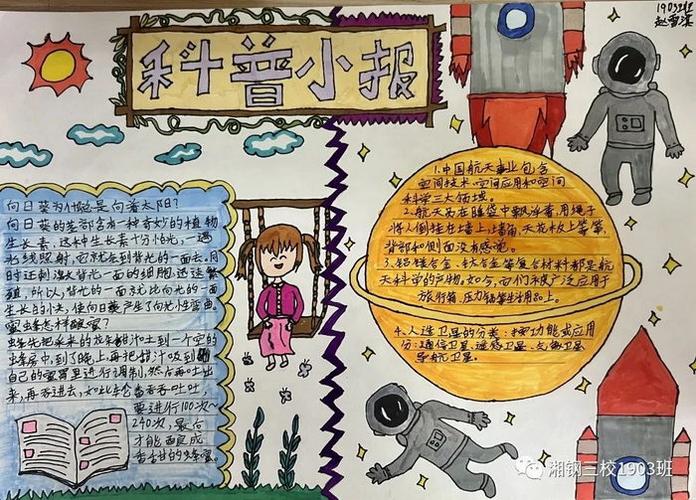 科普小报
1903班
向日葵为什么总是向着太阳?
向日葵的茎部含有一种奇妙的植物
生长素,这种生长素十分怕光,一遇
光线照射,它就会到背光的一面去,同
时还刺激背光一面的细胞迅速繁
殖,所以,背光的一面就比向光的一面
生长的快,使向日葵产生了向光性弯曲。
蜜蜂怎样酿蜜?
蜂先把采来的花朵甜汁吐到一个空的
蜂房中,到了晚上,再把甜汁吸到
自己的蜜胃里进行调制,然后再吐出
来,再吞进去,如此轮番吞吞吐吐,
要进行100次~
240次,最后
才能酿成
香甜的蜂蜜。
1.中国航天事业包含
空间技术、空间应用和空间
科学三大领域。
2.航天员在睡袋中飘浮着,用绳子
将人倒挂在墙上,墙角,天花板上等等,
背部和侧面没有感吧。
3.铝镁合金、钛合金等复合材料都是航
天科学的产物,如今,它们未被广泛应用于
旅行箱、压力锅等生活用品上。
4.人造卫星的分类:按功能或应用
分:通信卫星、遥感卫星、气象卫星
导航卫星。
湘钢三校1903班